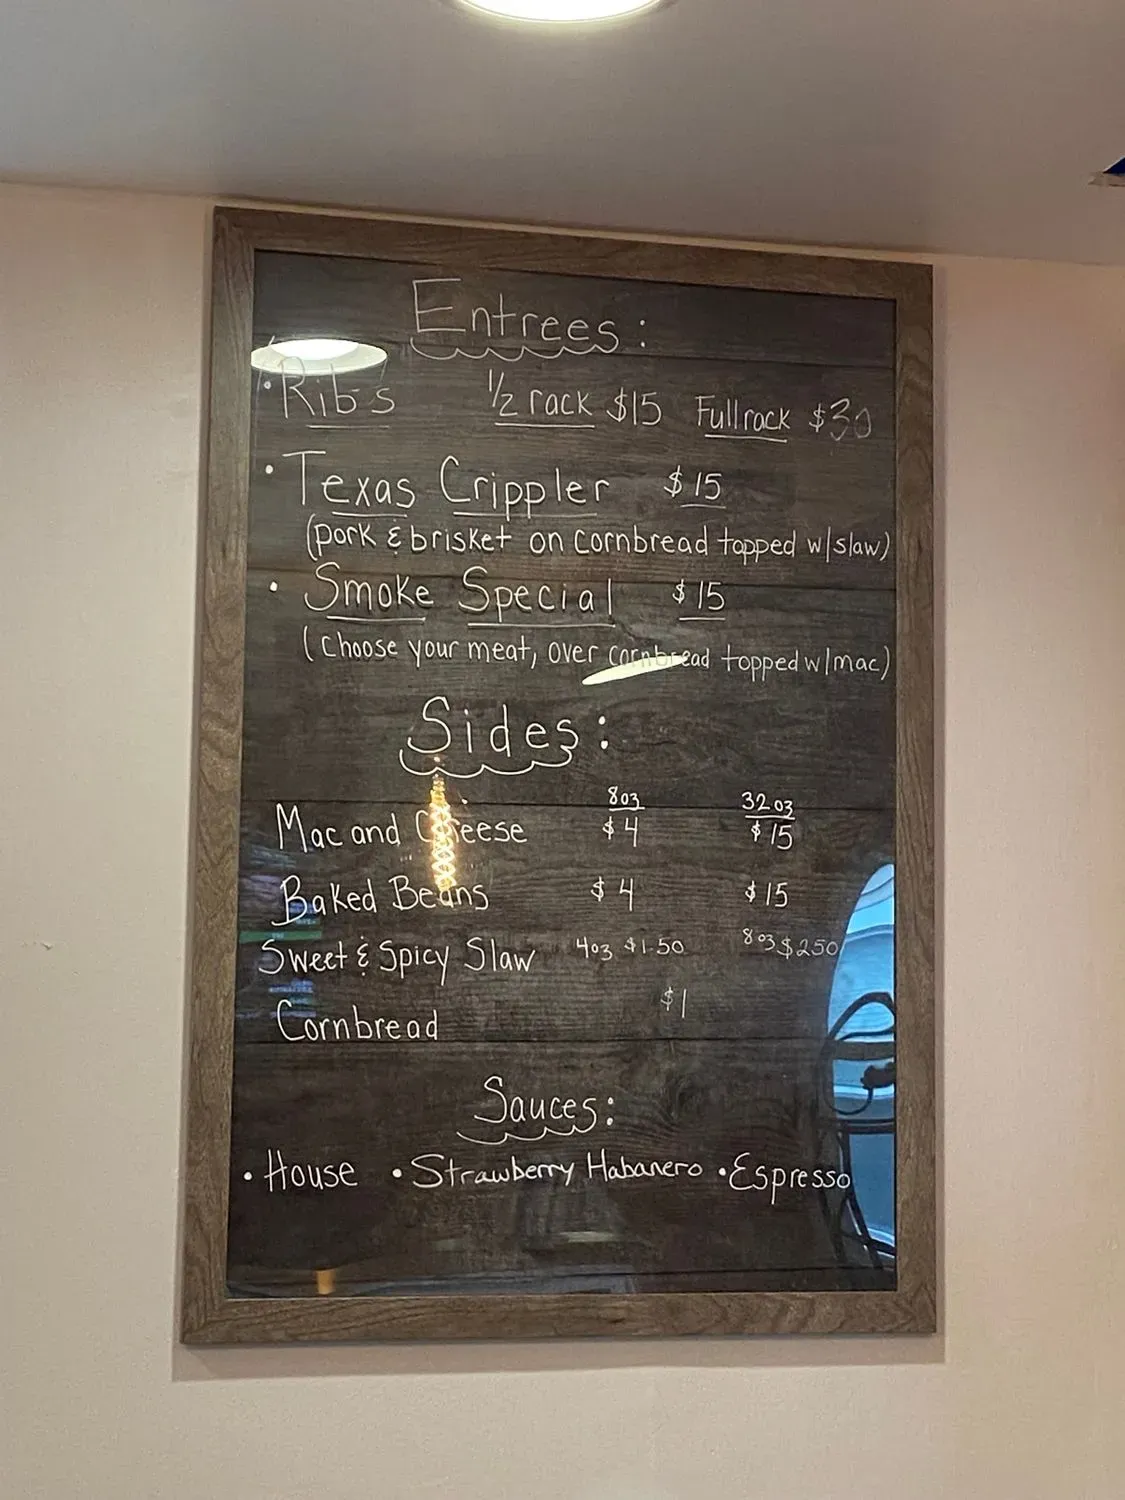 Entrees:
• Ribs 1/2 rack $15 Full rack $30
• Texas Crippler $15
(pork & brisket on cornbread topped w/slaw)
• Smoke Special $15
(Choose your meat, over cornbread topped w/mac)
Sides:
8oz 32oz
Mac and Cheese $4 $15
Baked Beans $4 $15
Sweet & Spicy Slaw 4oz $1.50 8oz $2.50
Cornbread $1
Sauces:
• House • Strawberry Habanero • Espresso